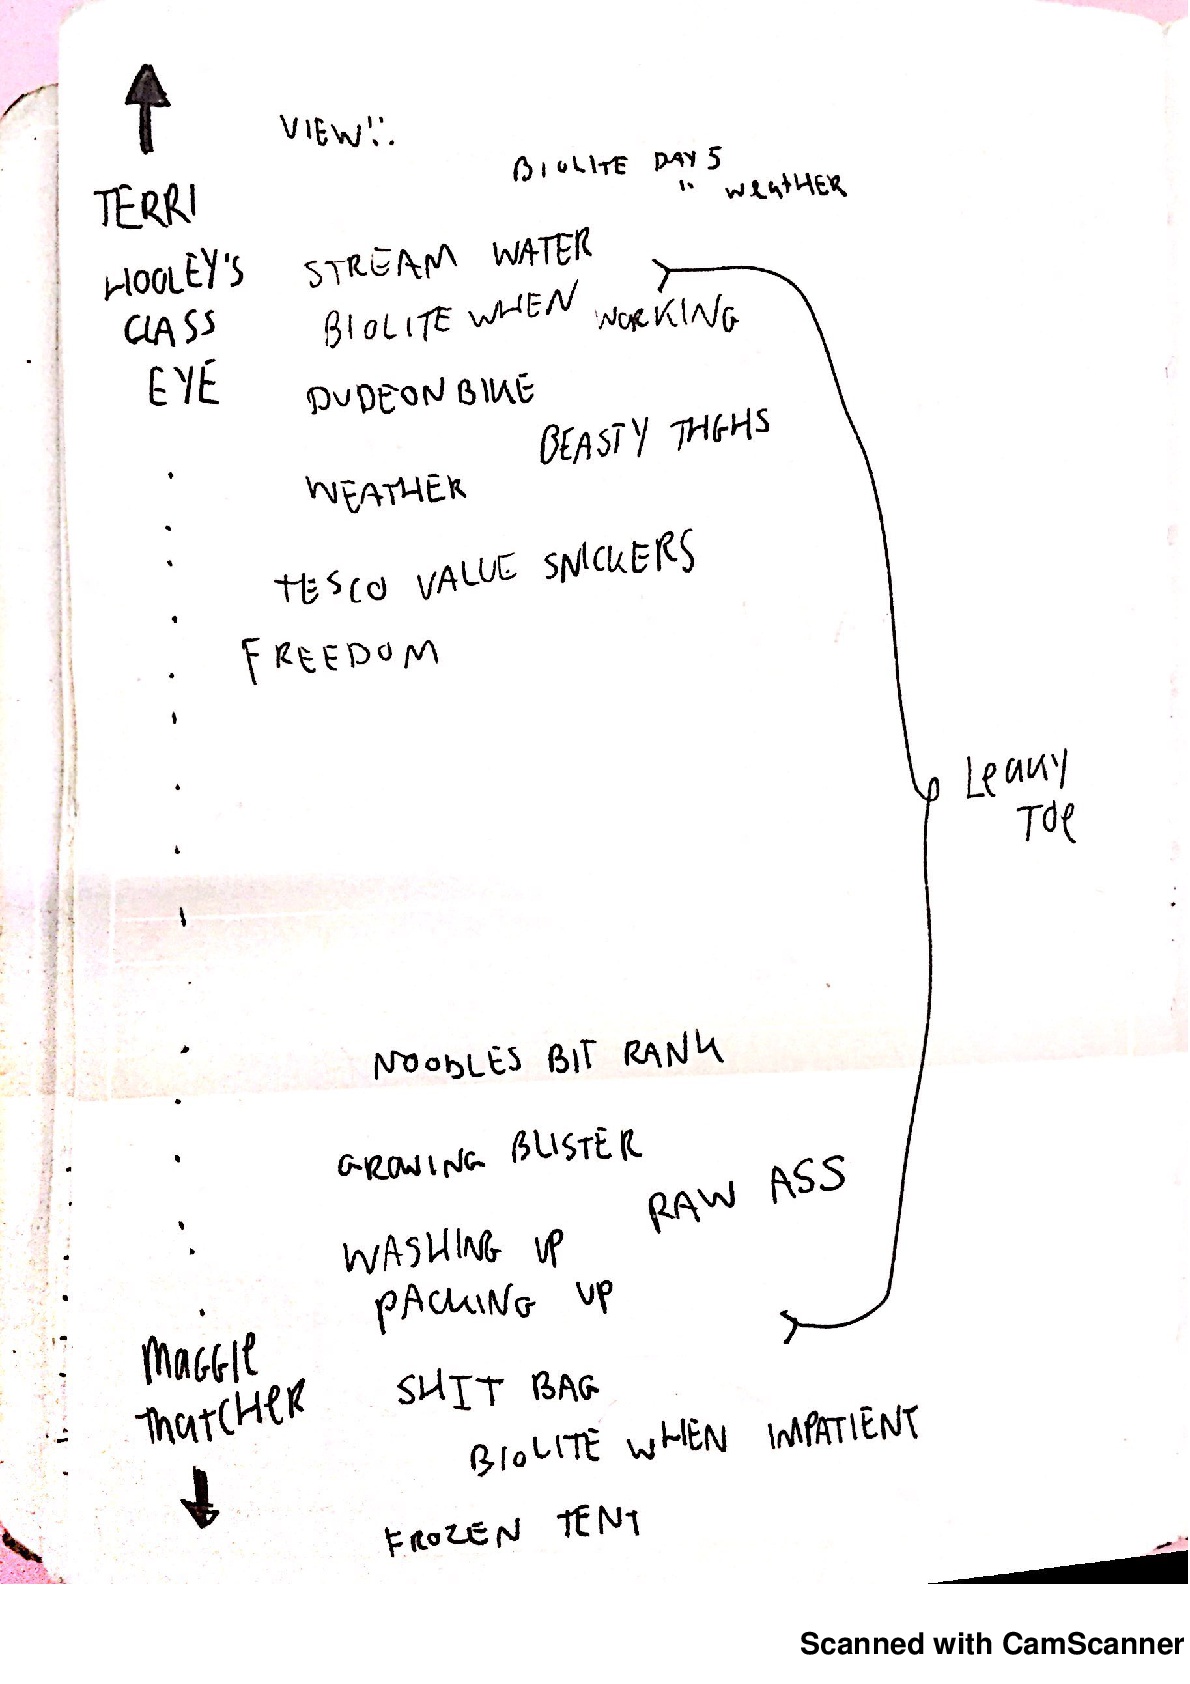 VIEW!!
BIOLITE DAY 5
" WeatHER
TERRI
HOOLEY'S
GLASS
EYE
STREAM WATER
BIOLITE WHEN WORKING
DUDE ON BIKE
BEASTY THGHS
WEATHER
TESCO VALUE SNICKERS
FREEDOM
LeaKY
TOe
NOODLES BIT RANK
GROWING BLISTER
RAW ASS
WASHING UP
PACKING UP
MaGGIe
THatCHeR
SHIT BAG
BIOLITE WHEN IMPATIENT
FROZEN TENT
Scanned with CamScanner